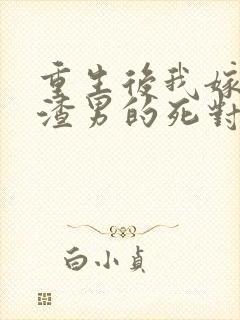 重生後我嫁
渣男的死對
白小貞